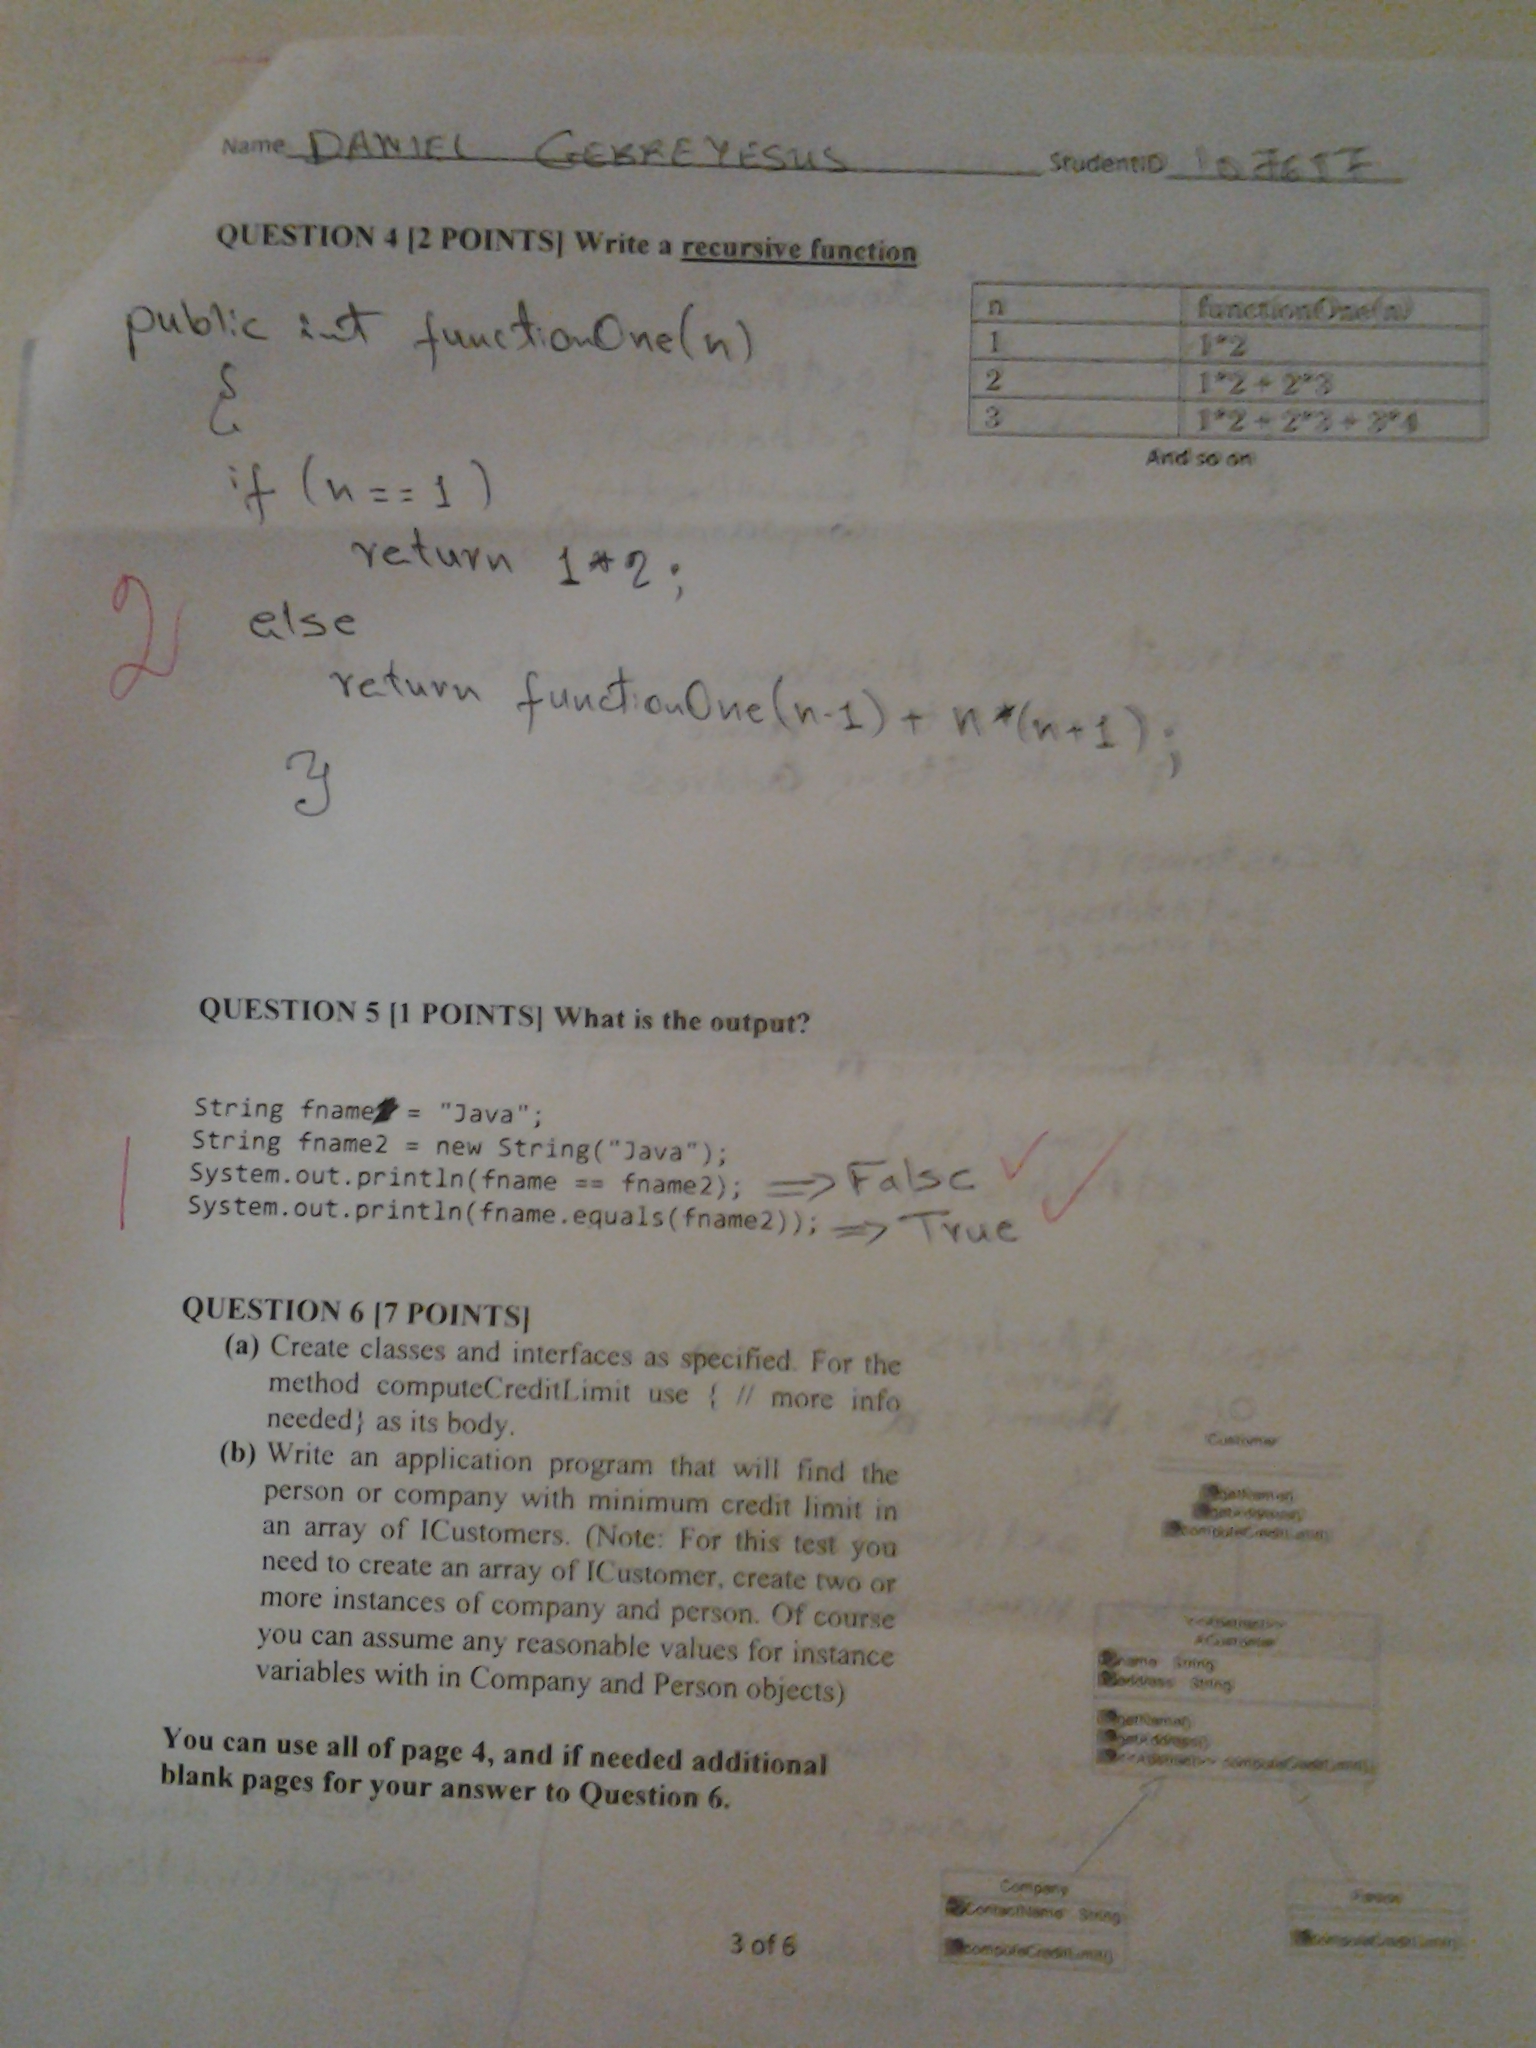 Name DANIEL GEBREYESUS StudentID
QUESTION 4 [2 POINTS] Write a recursive function
n functionOne(n)
1 1*2
2 1*2 + 2*3
3 1*2 + 2*3 + 3*4
And so on
public int functionOne(n)
{
if (n==1)
return 1*2;
else
return functionOne(n-1) + n*(n+1);
}
2
QUESTION 5 [1 POINTS] What is the output?
String fname = "Java";
String fname2 = new String("Java");
System.out.println(fname == fname2); => False
System.out.println(fname.equals(fname2)); => True
1
QUESTION 6 [7 POINTS]
(a) Create classes and interfaces as specified. For the
method computeCreditLimit use { // more info
needed} as its body.
(b) Write an application program that will find the
person or company with minimum credit limit in
an array of ICustomers. (Note: For this test you
need to create an array of ICustomer, create two or
more instances of company and person. Of course
you can assume any reasonable values for instance
variables with in Company and Person objects)
You can use all of page 4, and if needed additional
blank pages for your answer to Question 6.
getName()
getAddress()
computeCreditLimit()
<<Abstract>>
ACustomer
name String
address String
getName()
getAddress()
<<Abstract>> computeCreditLimit()
Company
ContactName String
computeCreditLimit()
Person
computeCreditLimit()
3 of 6